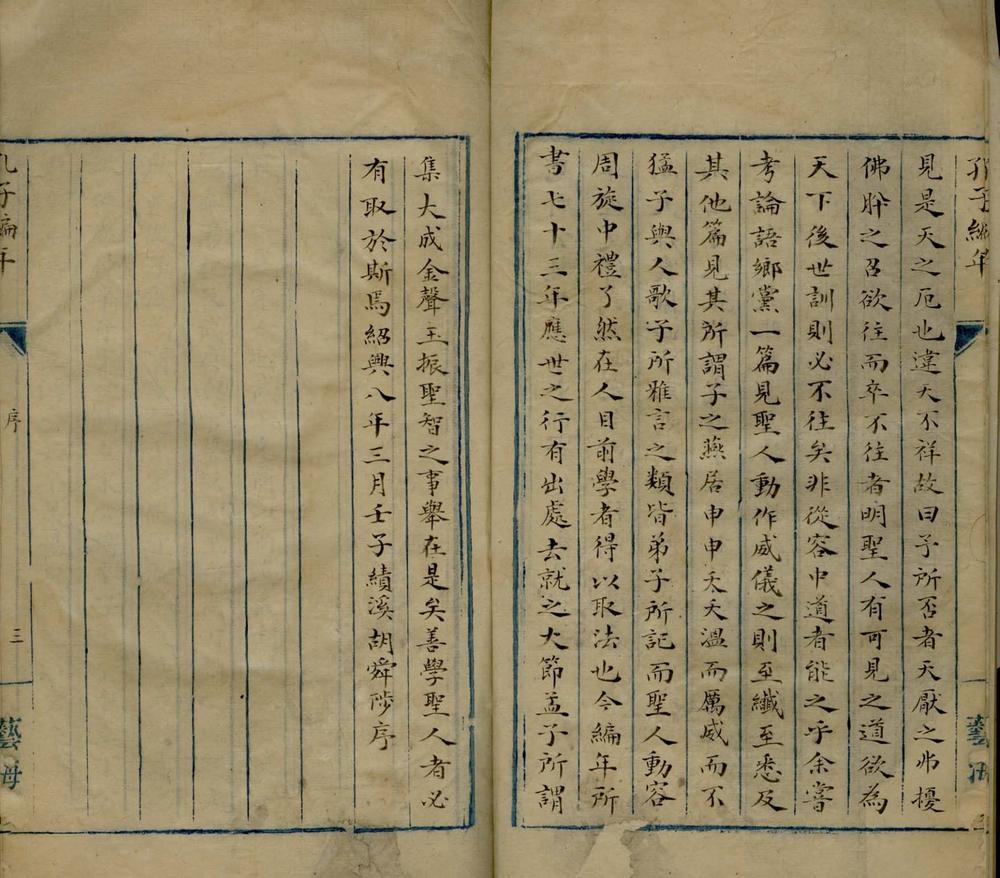 孔子編年
見是天之厄也違天不祥故曰予所否者天厭之弗擾
佛肸之召欲往而卒不往者明聖人有可見之道欲為
天下後世訓則必不往矣非從容中道者能之乎余嘗
考論語鄉黨一篇見聖人動作威儀之則至纖至悉及
其他篇見其所謂子之燕居申申夭夭溫而厲威而不
猛子與人歌子所雅言之類皆弟子所記而聖人動容
周旋中禮了然在人目前學者得以取法也今編年所
書七十三年應世之行有出處去就之大節孟子所謂
藝海
集大成金聲玉振聖智之事舉在是矣善學聖人者必
有取於斯焉紹興八年三月壬子績溪胡舜陟序
孔子編年
序
三
藝海